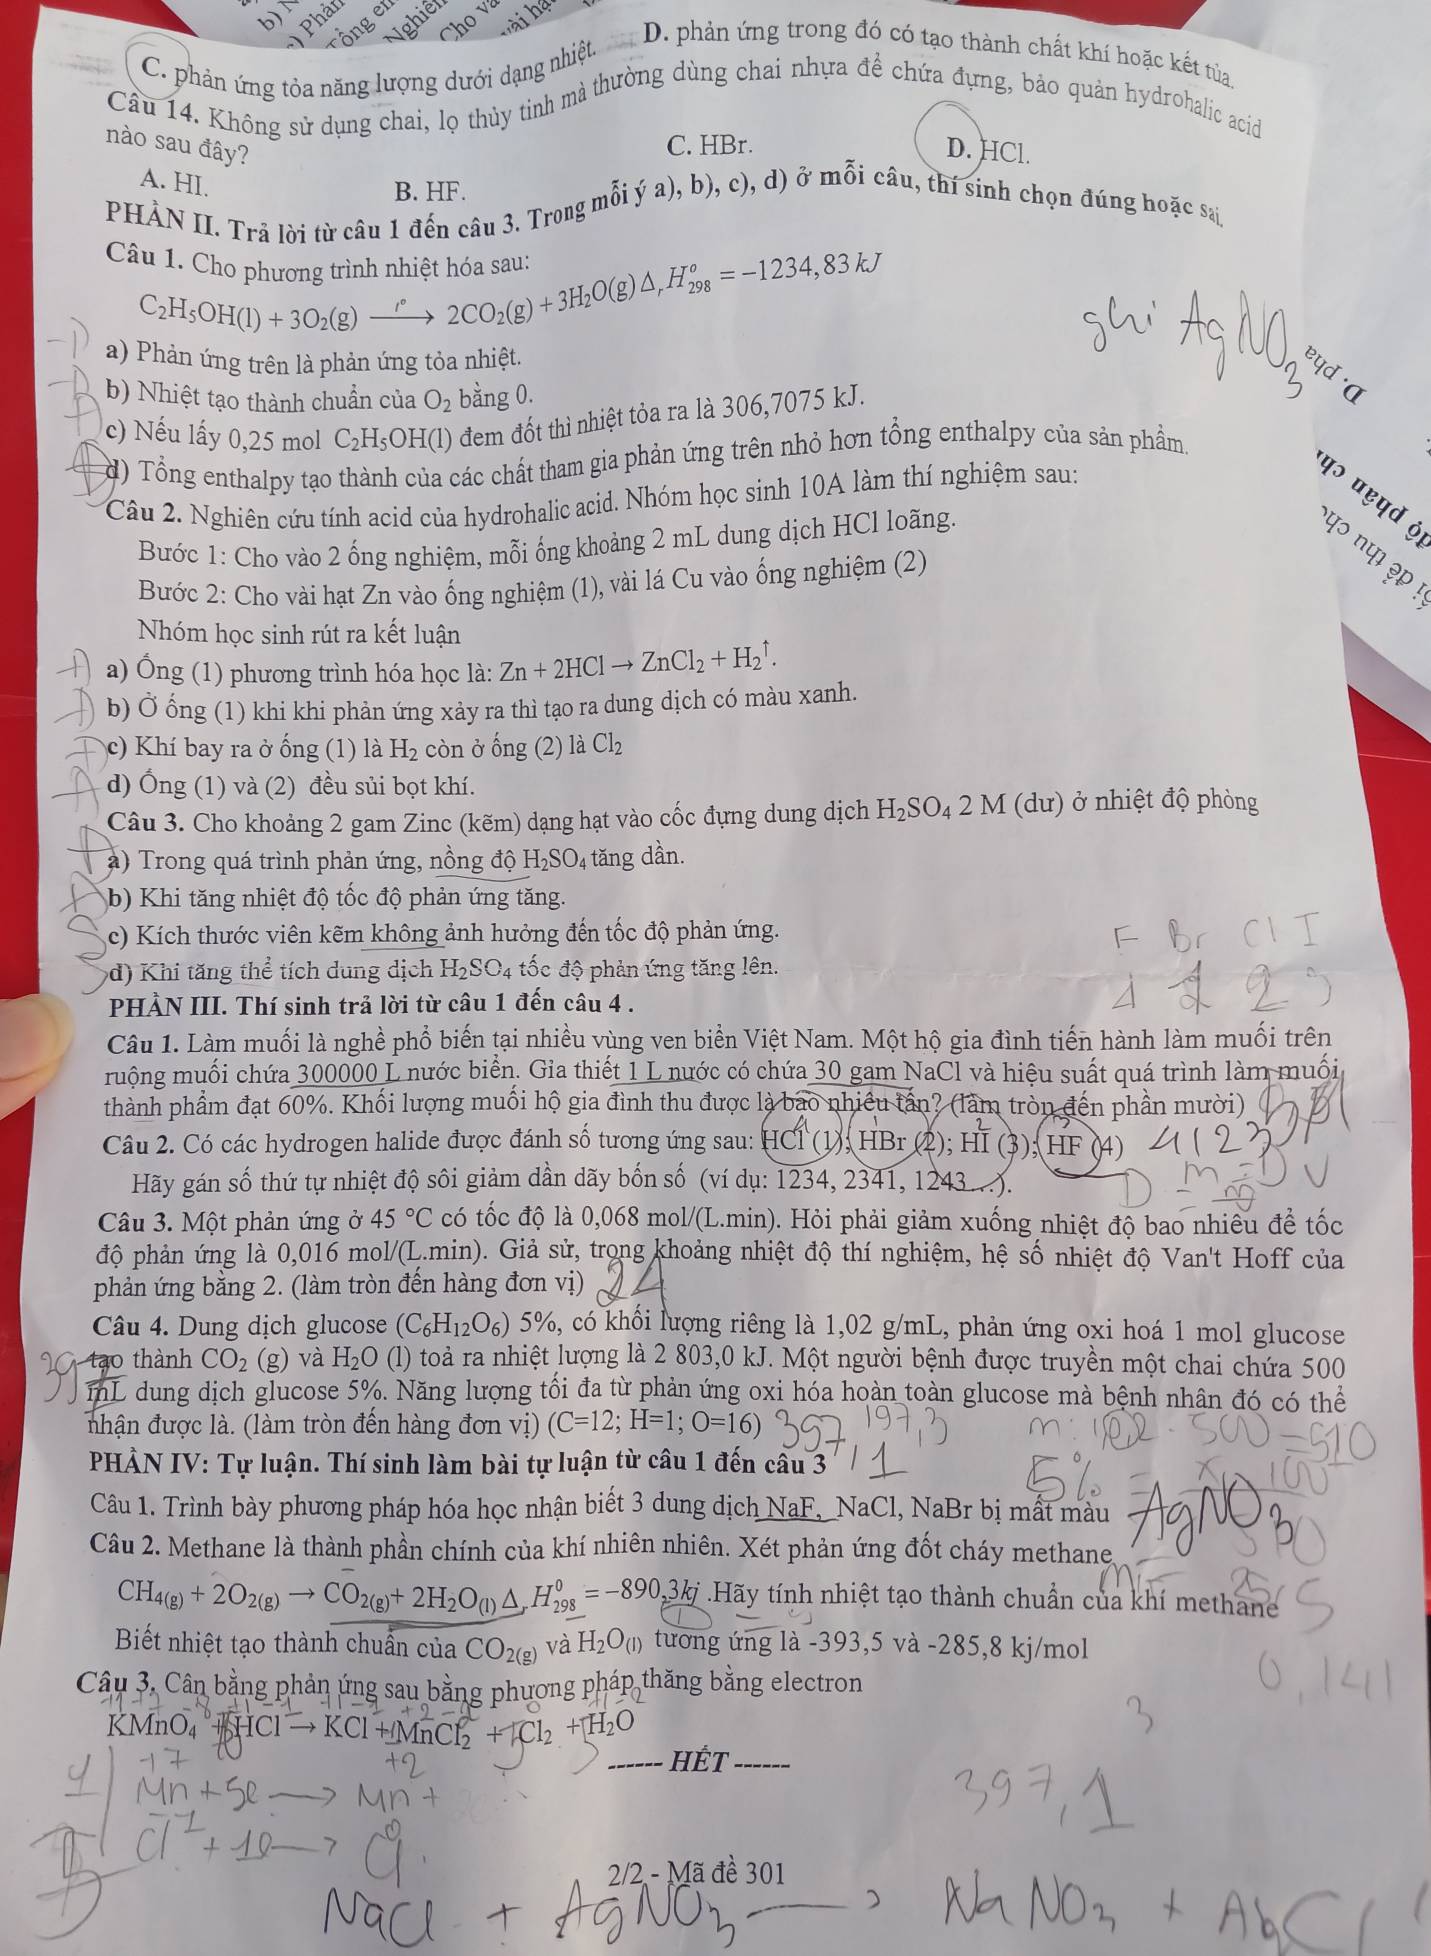 b) N
) Phản
Nghiên
Cho
C. phản ứng tỏa năng lượng dưới dạng nhiệt. D. phản ứng trong đó có tạo thành chất khí hoặc kết tủa.
Câu 14. Không sử dụng chai, lọ thủy tinh mà thường dùng chai nhựa để chứa đựng, bảo quản hydrohalic acid
nào sau đây?
A. HI. B. HF. C. HBr. D. HCl.
PHẦN II. Trả lời từ câu 1 đến câu 3. Trong mỗi ý a), b), c), d) ở mỗi câu, thí sinh chọn đúng hoặc sai.
Câu 1. Cho phương trình nhiệt hóa sau:
C₂H₅OH(l) + 3O₂(g) —t°→ 2CO₂(g) + 3H₂O(g) ΔᵣH°₂₉₈ = −1234,83 kJ
ghi AgNO₃
D. pha
a) Phản ứng trên là phản ứng tỏa nhiệt.
b) Nhiệt tạo thành chuẩn của O₂ bằng 0.
c) Nếu lấy 0,25 mol C₂H₅OH(l) đem đốt thì nhiệt tỏa ra là 306,7075 kJ.
d) Tổng enthalpy tạo thành của các chất tham gia phản ứng trên nhỏ hơn tổng enthalpy của sản phẩm.
độ phân
để thu
Câu 2. Nghiên cứu tính acid của hydrohalic acid. Nhóm học sinh 10A làm thí nghiệm sau:
Bước 1: Cho vào 2 ống nghiệm, mỗi ống khoảng 2 mL dung dịch HCl loãng.
Bước 2: Cho vài hạt Zn vào ống nghiệm (1), vài lá Cu vào ống nghiệm (2)
Nhóm học sinh rút ra kết luận
a) Ống (1) phương trình hóa học là: Zn + 2HCl → ZnCl₂ + H₂↑.
b) Ở ống (1) khi khi phản ứng xảy ra thì tạo ra dung dịch có màu xanh.
c) Khí bay ra ở ống (1) là H₂ còn ở ống (2) là Cl₂
d) Ống (1) và (2) đều sủi bọt khí.
Câu 3. Cho khoảng 2 gam Zinc (kẽm) dạng hạt vào cốc đựng dung dịch H₂SO₄ 2 M (dư) ở nhiệt độ phòng
a) Trong quá trình phản ứng, nồng độ H₂SO₄ tăng dần.
b) Khi tăng nhiệt độ tốc độ phản ứng tăng.
c) Kích thước viên kẽm không ảnh hưởng đến tốc độ phản ứng.
F Br Cl I
d) Khi tăng thể tích dung dịch H₂SO₄ tốc độ phản ứng tăng lên.
PHẦN III. Thí sinh trả lời từ câu 1 đến câu 4 .
Câu 1. Làm muối là nghề phổ biến tại nhiều vùng ven biển Việt Nam. Một hộ gia đình tiến hành làm muối trên
ruộng muối chứa 300000 L nước biển. Giả thiết 1 L nước có chứa 30 gam NaCl và hiệu suất quá trình làm muối
thành phẩm đạt 60%. Khối lượng muối hộ gia đình thu được là bao nhiêu tấn? (làm tròn đến phần mười)
Câu 2. Có các hydrogen halide được đánh số tương ứng sau: HCl (1); HBr (2); HI (3); HF (4) 4123
Hãy gán số thứ tự nhiệt độ sôi giảm dần dãy bốn số (ví dụ: 1234, 2341, 1243...).
D = m/V
Câu 3. Một phản ứng ở 45 °C có tốc độ là 0,068 mol/(L.min). Hỏi phải giảm xuống nhiệt độ bao nhiêu để tốc
độ phản ứng là 0,016 mol/(L.min). Giả sử, trong khoảng nhiệt độ thí nghiệm, hệ số nhiệt độ Van't Hoff của
phản ứng bằng 2. (làm tròn đến hàng đơn vị) 24
Câu 4. Dung dịch glucose (C₆H₁₂O₆) 5%, có khối lượng riêng là 1,02 g/mL, phản ứng oxi hoá 1 mol glucose
tạo thành CO₂ (g) và H₂O (l) toả ra nhiệt lượng là 2 803,0 kJ. Một người bệnh được truyền một chai chứa 500
mL dung dịch glucose 5%. Năng lượng tối đa từ phản ứng oxi hóa hoàn toàn glucose mà bệnh nhân đó có thể
nhận được là. (làm tròn đến hàng đơn vị) (C=12; H=1; O=16) 397,1 197,3
PHẦN IV: Tự luận. Thí sinh làm bài tự luận từ câu 1 đến câu 3
5%
Câu 1. Trình bày phương pháp hóa học nhận biết 3 dung dịch NaF, NaCl, NaBr bị mất màu AgNO₃
Câu 2. Methane là thành phần chính của khí nhiên nhiên. Xét phản ứng đốt cháy methane
CH₄₍g₎ + 2O₂₍g₎ → CO₂₍g₎ + 2H₂O₍l₎ ΔᵣH⁰₂₉₈ = −890,3kj .Hãy tính nhiệt tạo thành chuẩn của khí methane
Biết nhiệt tạo thành chuẩn của CO₂₍g₎ và H₂O₍l₎ tương ứng là -393,5 và -285,8 kj/mol
0,141
Câu 3. Cân bằng phản ứng sau bằng phương pháp thăng bằng electron
KMnO₄ + HCl → KCl + MnCl₂ + Cl₂ + H₂O
3
------ HẾT ------
+7 +2
Mn + 5e → Mn +
397,1
2/2 - Mã đề 301
NaCl + AgNO₃ → NaNO₃ +